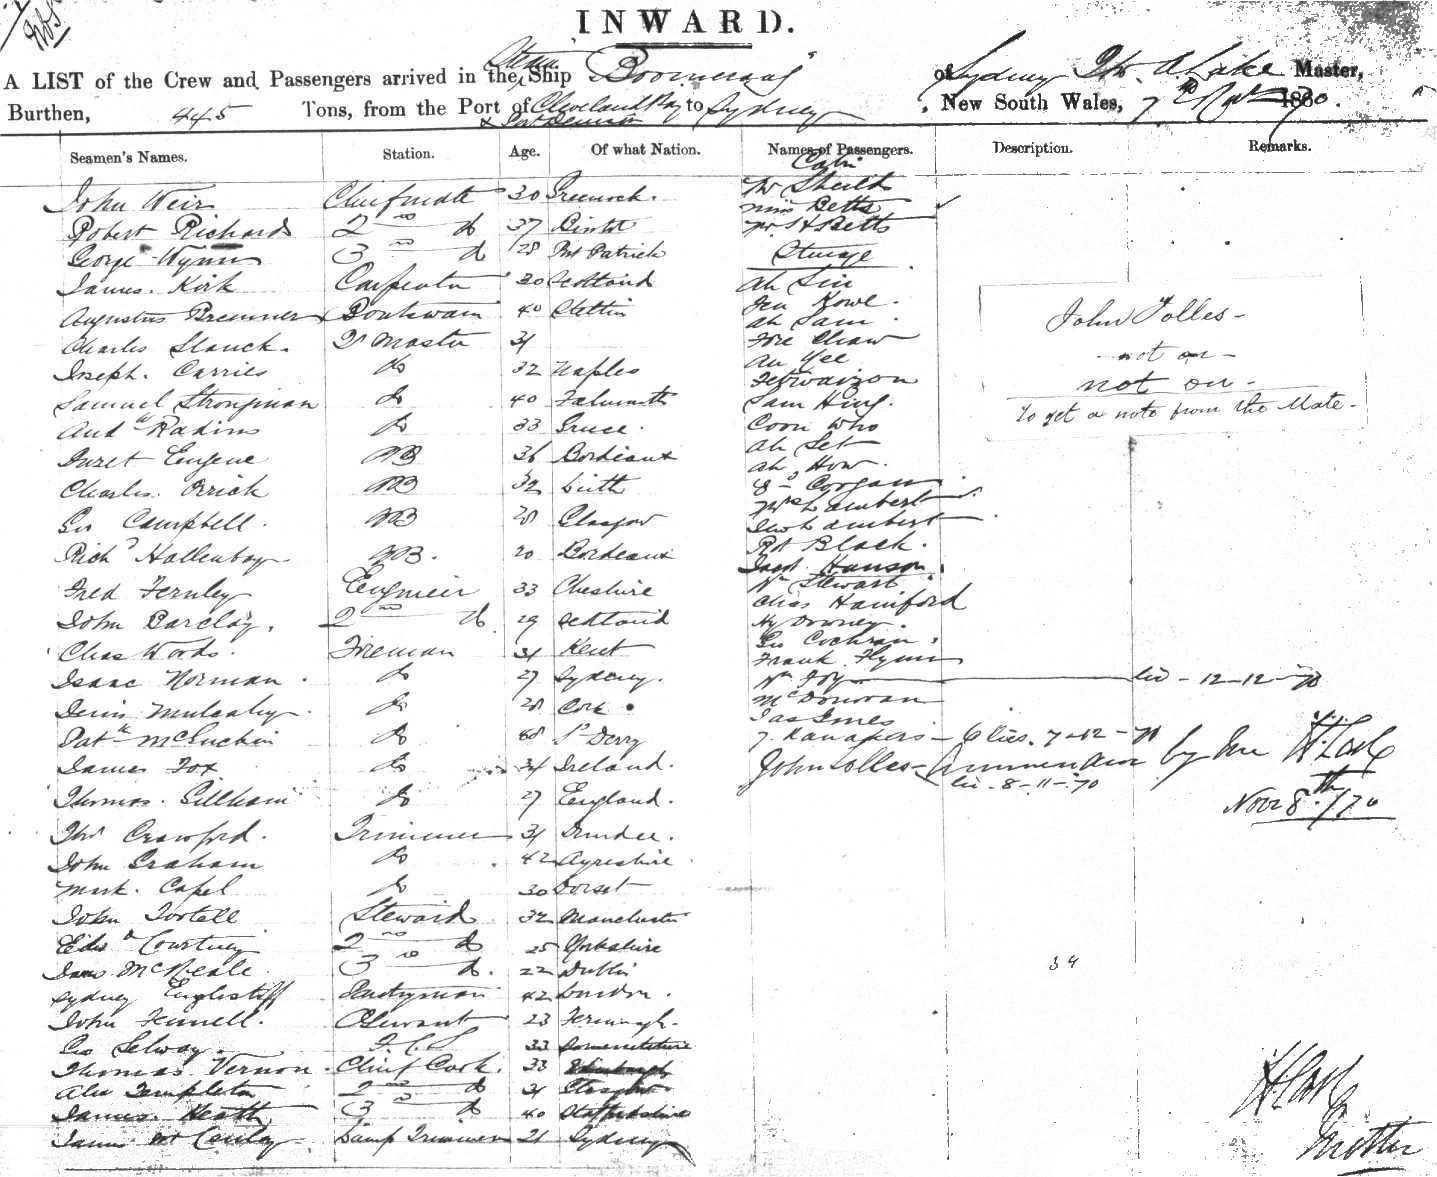 INWARD.
A LIST of the Crew and Passengers arrived in the Steam Ship Boomerang of Sydney Thos. A Lake Master,
Burthen, 445 Tons, from the Port of Cleveland Bay & Port Denison to Sydney, New South Wales, 7th Nov 1870.
Seamen's Names. Station. Age. Of what Nation. Names of Passengers. Description. Remarks.
Cabin
John Weir Chief mate 30 Greenock. Mr Sheild
Miss Betts
Robert Richards 2nd do 37 Bristol Mr H Betts
George Wynn 3rd do 28 Port Patrick Steerage
James Kirk Carpenter 30 Scotland Ah Sin
Augustus Bremner Boatswain 40 Stettin Jen Kowe.
Ah Sam
Charles Slauck. Qr Master 31 Foie Chaw
Joseph. Carries Do 32 Naples Ah Yee
Samuel Strongman Do 40 Falmouth Sam Hing.
Andw Radins Do 33 Greece. Coon Who
Ah Set
Inzet Eugene AB 36 Bordeaux Ah How.
Charles. Orrick AB 32 Leith
Mrs Lambert
Geo Campbell. AB 28 Glasgow Lambert
Richd Hallenbay AB. 20 Bordeaux Rbt Black.
Jacob Hanson.
Fred Fernley Engineer 33 Cheshire Wm Stewart
Chas Haniford
John Barclay. 2nd do 29 Scotland Hy Downey.
Geo Cochran.
Chas Woods. Fireman 31 Kent Frank Flynn
Isaac Norman. Do 27 Sydney. Wm Foy lic - 12-12-70
Denis Mulcahy. Do 28 Cork McDonovan
Jas Innes
Patk McGuckin Do L'Derry 7. Kanakers - 6 lics. 7-12-70
James Fox Do 34 Ireland. John Tolles - by me H Lake
lic. 8-11-70
Thomas. Gillham Do 27 England. Novr 8th/70
Thos Crawford. Trimmer 31 Dundee.
John Graham Do 42 Ayreshire.
Mark. Capel Do 30 Dorset
John Tortell Steward 32 Manchester
Edwd Courtney 2nd do 25 Yorkshire
James McNeale 3rd do. 22 Dublin 34
Sydney Englestiff Pantryman 42 London.
John Fennell. Servant 23 Fermanagh.
Geo Selway. F.C.S 33 Somersetshire
Thomas Vernon. Chief Cook. 33 Edinburgh
Alex Templeton 2nd do 31
James. Heath 3rd do 40 Staffordshire
James McCauley Lamp Trimmer 21 Sydney
John Tolles -
- not on -
not on -
To get a note from the Mate -